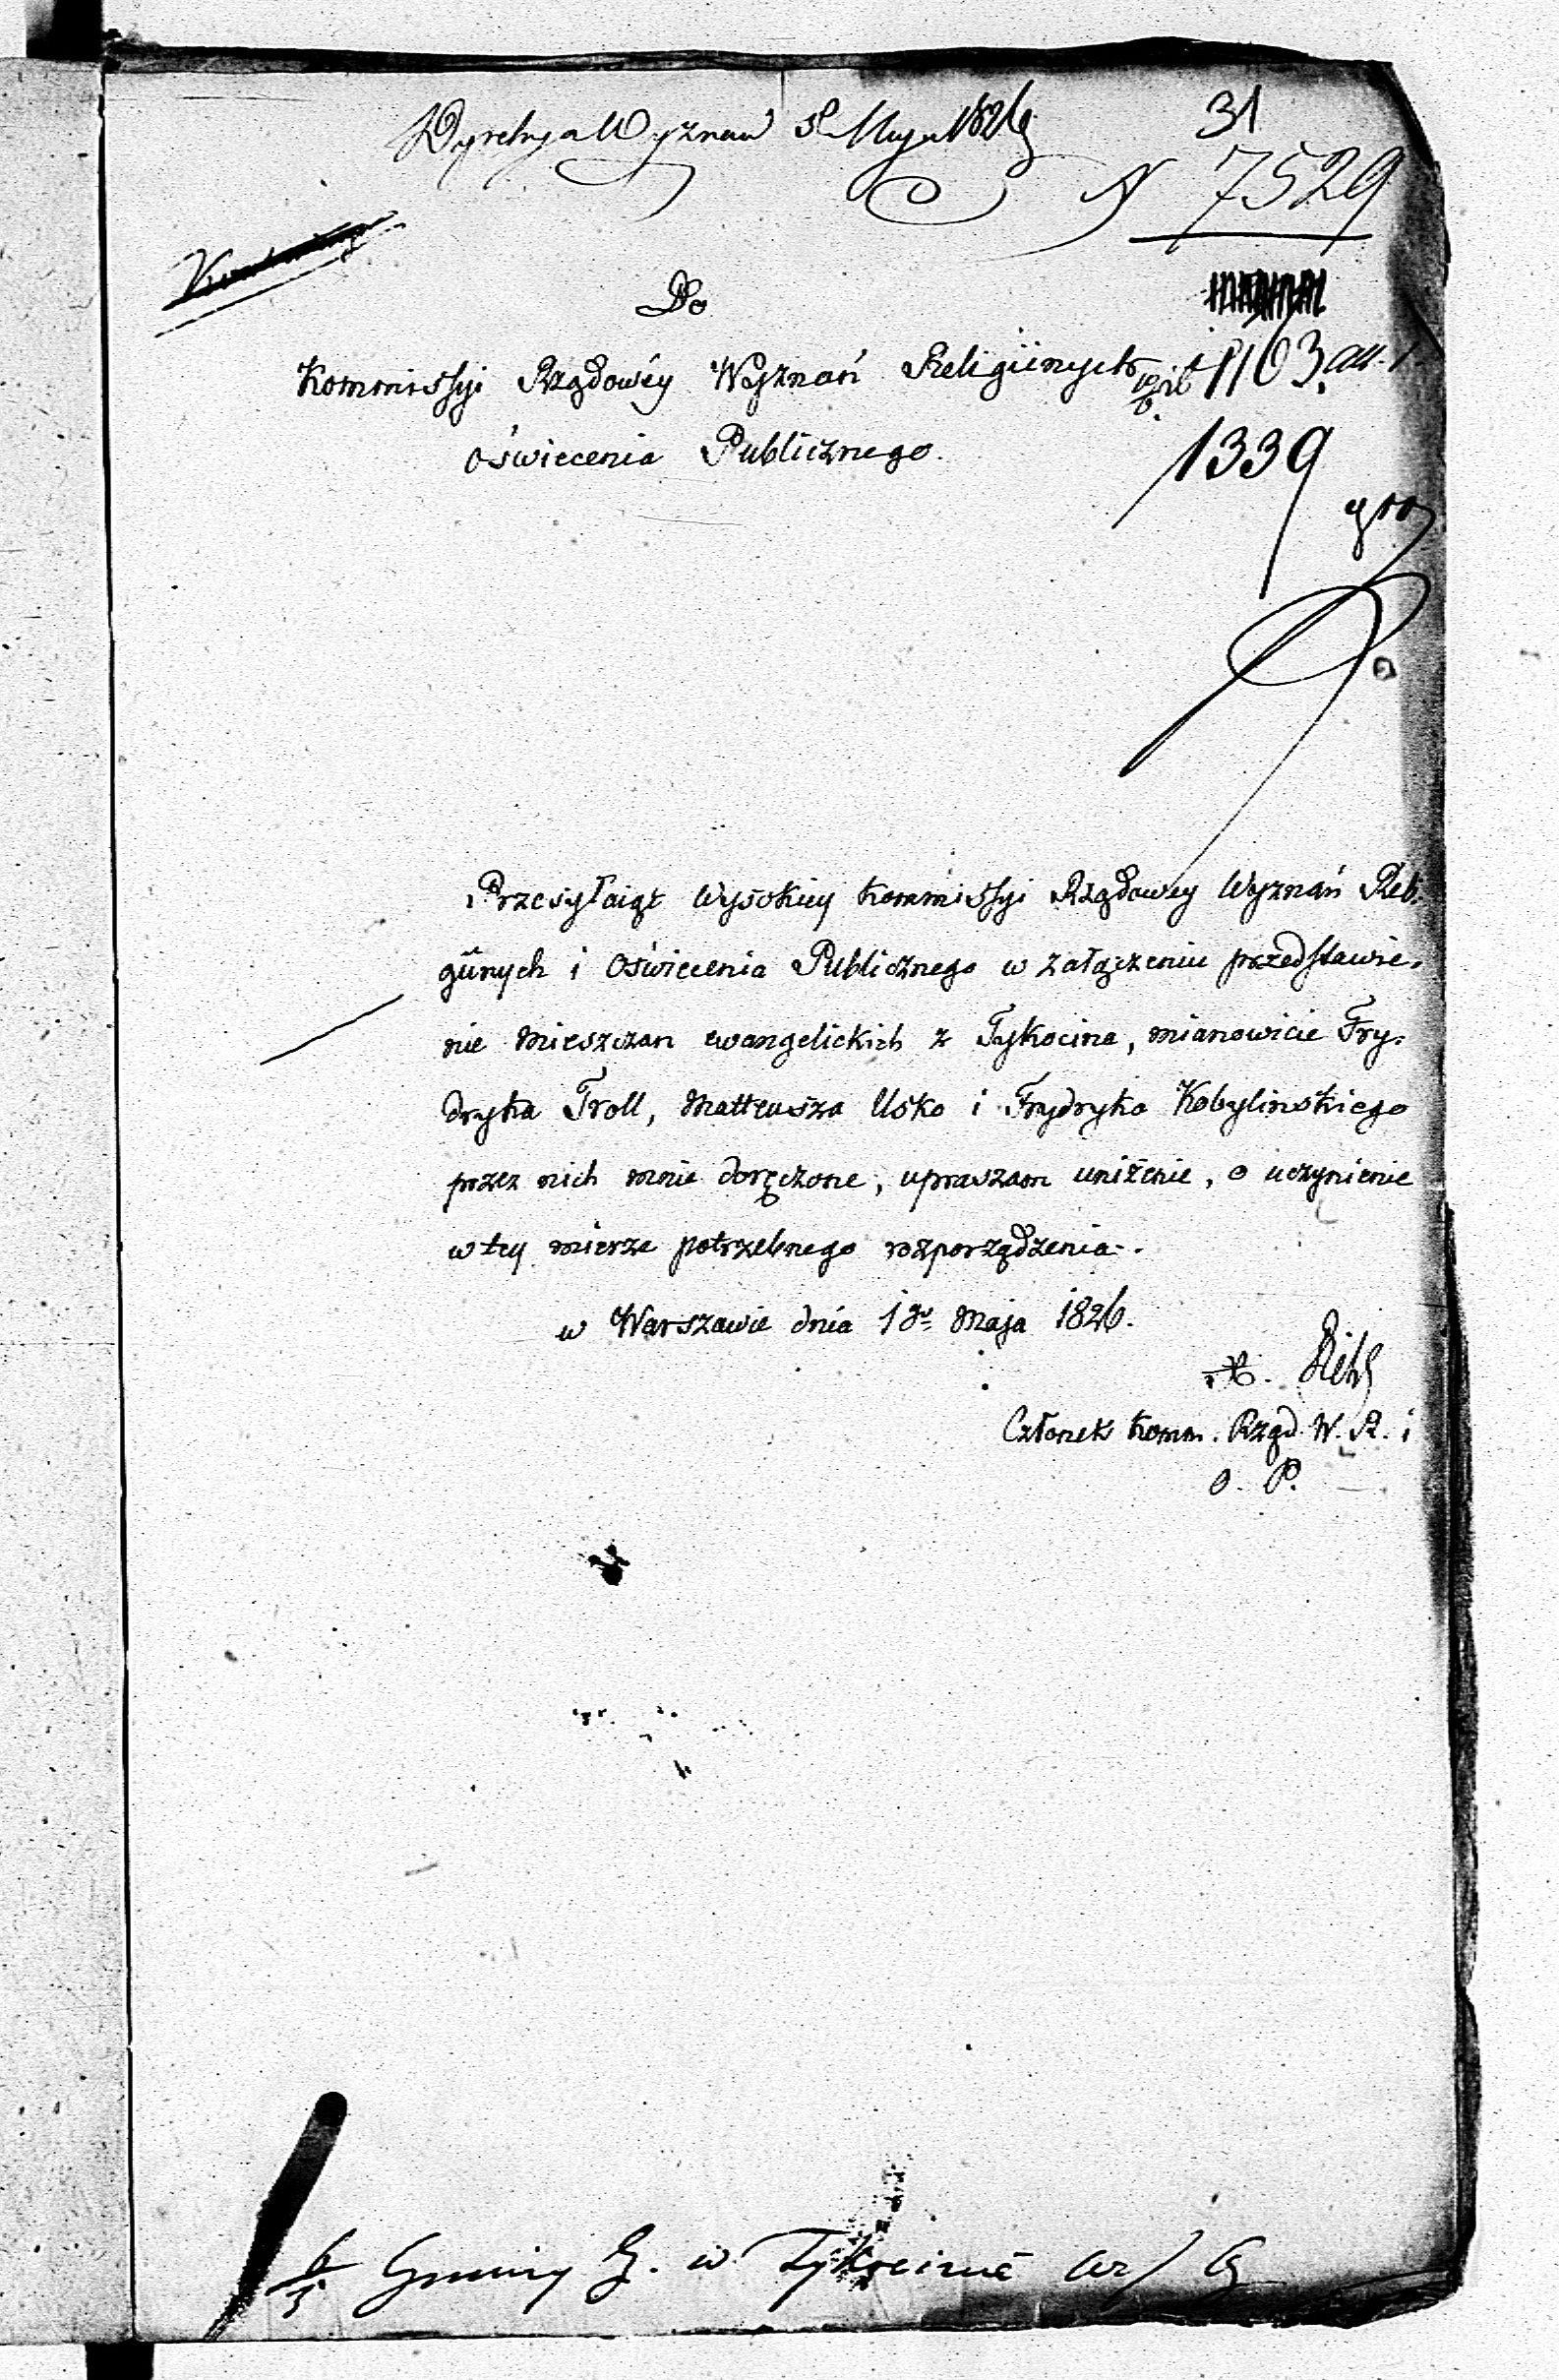 31
Dyrekcya Wyznań Maja 1826
N 7529
Do
Kommissyi Rządowéy Wyznań Religiinych i
1103
oświecenia Publicznego.
1339
Przesyłaiąc Wysokiey Kommissyi Rządowey Wyznań Reli-
giinych i Oświecenia Publicznego w załączeniu przedstawie-
nie Mieszczan ewangelickich z Tykocina, mianowicie Fry-
dryka Troll, Matteusza Usko i Frydryka Kobylinskiego
przez nich mnie doręczone, upraszam uniżenie, o uczynienie
w tey mierze potrzebnego rozporządzenia.
w Warszawie dnia 1go Maja 1826.
Członek Komm. Rząd. W. R. i
O. P.
6/5 Gminy E. w Tykocinie